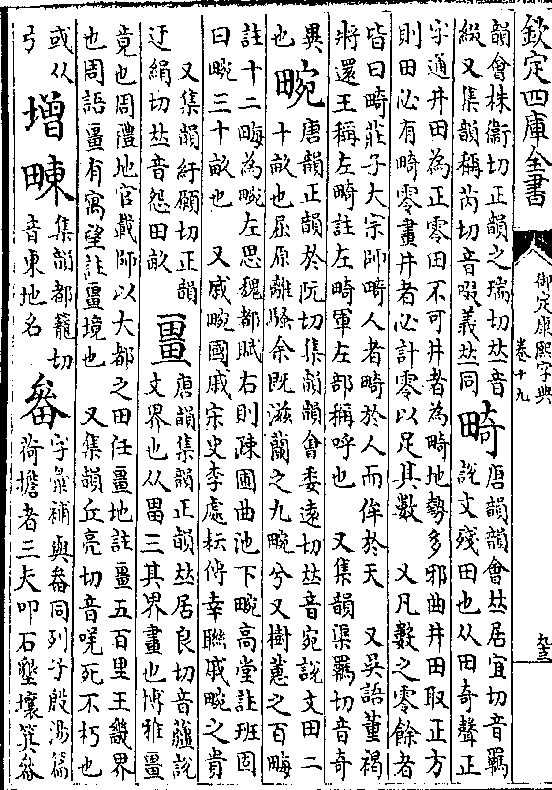 欽定四庫全書
御定康熙字典
卷十九
韻會株衞切正韻之瑞切𠀤音
綴又集韻稱芮切音啜義𠀤同
畸
唐韻韻會𠀤居宜切音羈
說文殘田也从田奇聲正
字通井田為正零田不可井者為畸地勢多邪曲井田取正方
則田必有畸零畫井者必計零以足其數　又凡數之零餘者
皆曰畸莊子大宗師畸人者畸於人而侔於天　又吳語董褐
將還王稱左畸註左畸軍左部稱呼也　又集韻渠羈切音奇
異
也
畹
唐韻正韻於阮切集韻韻會委遠切𠀤音宛說文田二
十畝也屈原離騷余既滋蘭之九畹兮又樹蕙之百畮
註十二畮為畹左思魏都賦右則疎圃曲池下畹高堂註班固
曰畹三十畝也　又戚畹國戚宋史李處耘傳幸聯戚畹之貴
又集韻紆願切正韻
迂絹切𠀤音怨田畝
畺
唐韻集韻正韻𠀤居良切音薑說
文界也从畕三其界畫也博雅畺
竟也周禮地官載師以大都之田任畺地註畺五百里王畿界
也周語畺有寓望註畺境也　又集韻丘亮切音唴死不朽也
或从
弓
增
𤲚
集韻都籠切
音東地名
畚
字彙補與畚同列子殷湯篇
荷擔者三夫叩石墾壤箕畚